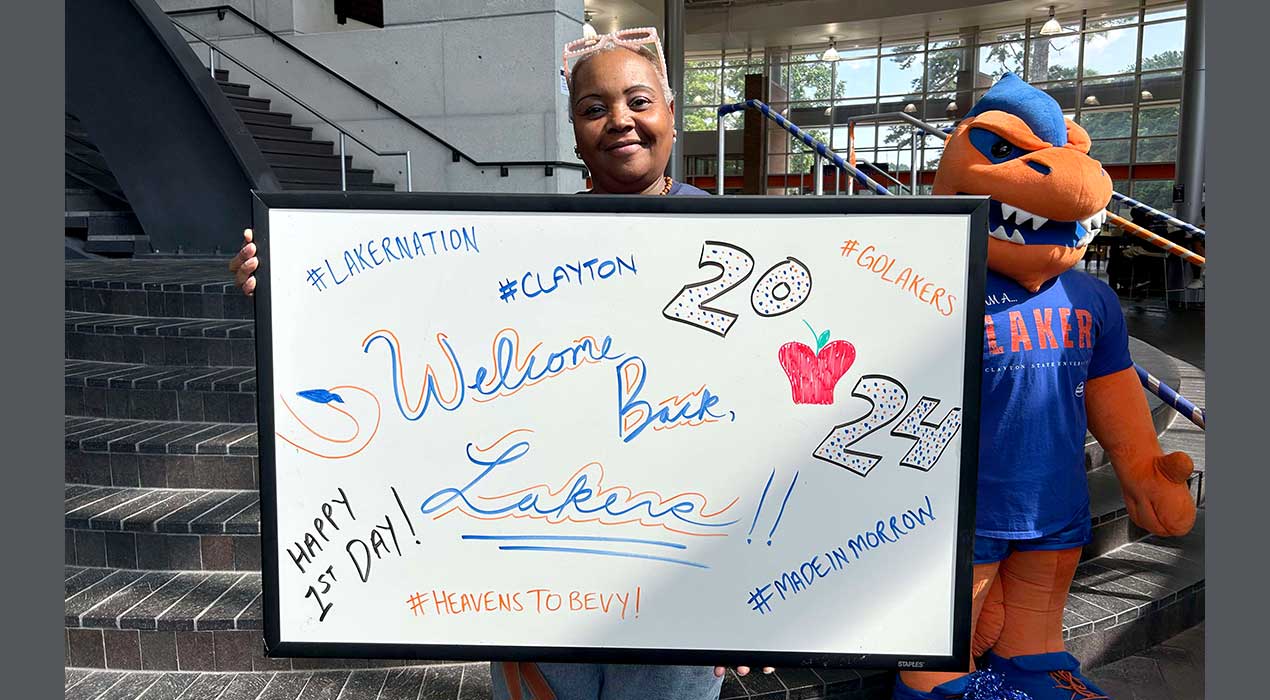 #LAKERNATION
#CLAYTON
20
#GOLAKERS
24
Welcome
Back,
Lakers!!
HAPPY
1ST DAY!
#HEAVENSTOBEVY!
#MADEINMORROW
STAPLES
I AM A...
LAKER
CLAYTON STATE UNIVERSITY